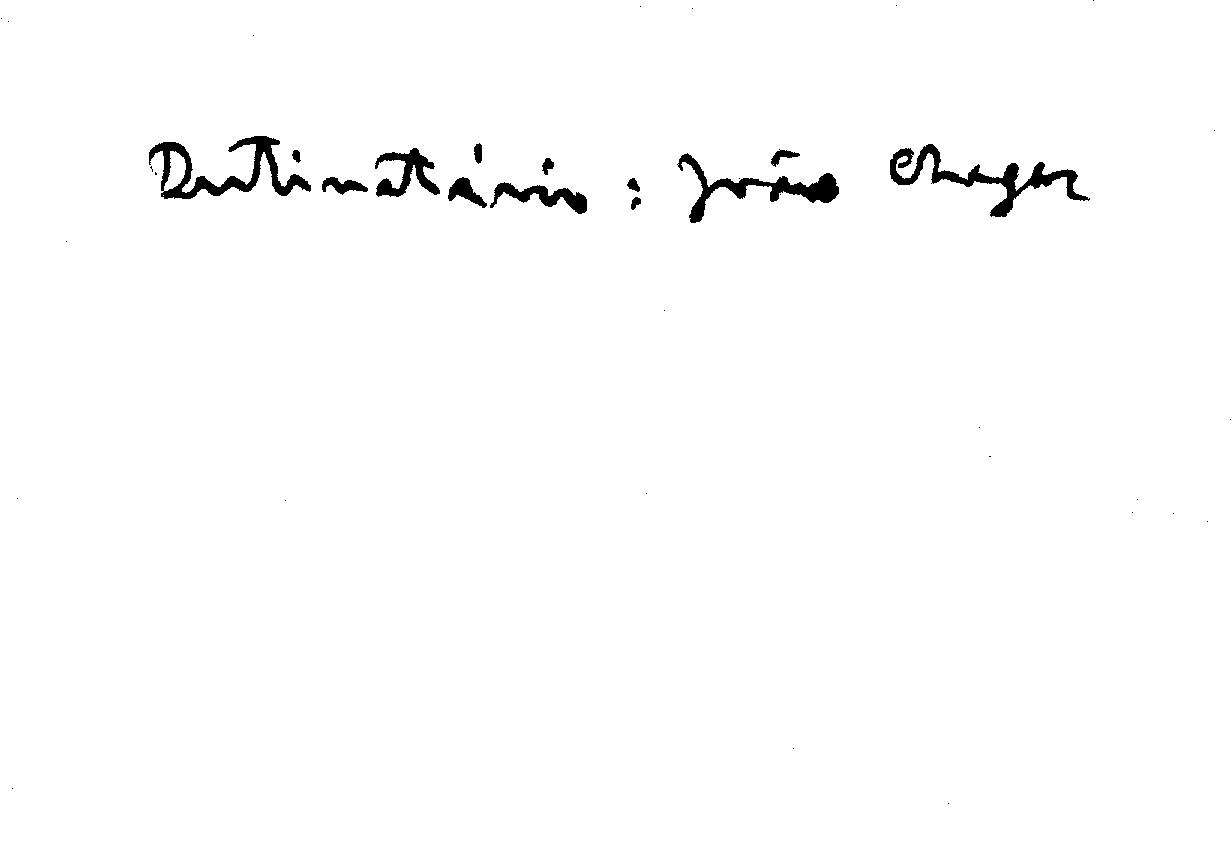 Destinatário: João Chagas